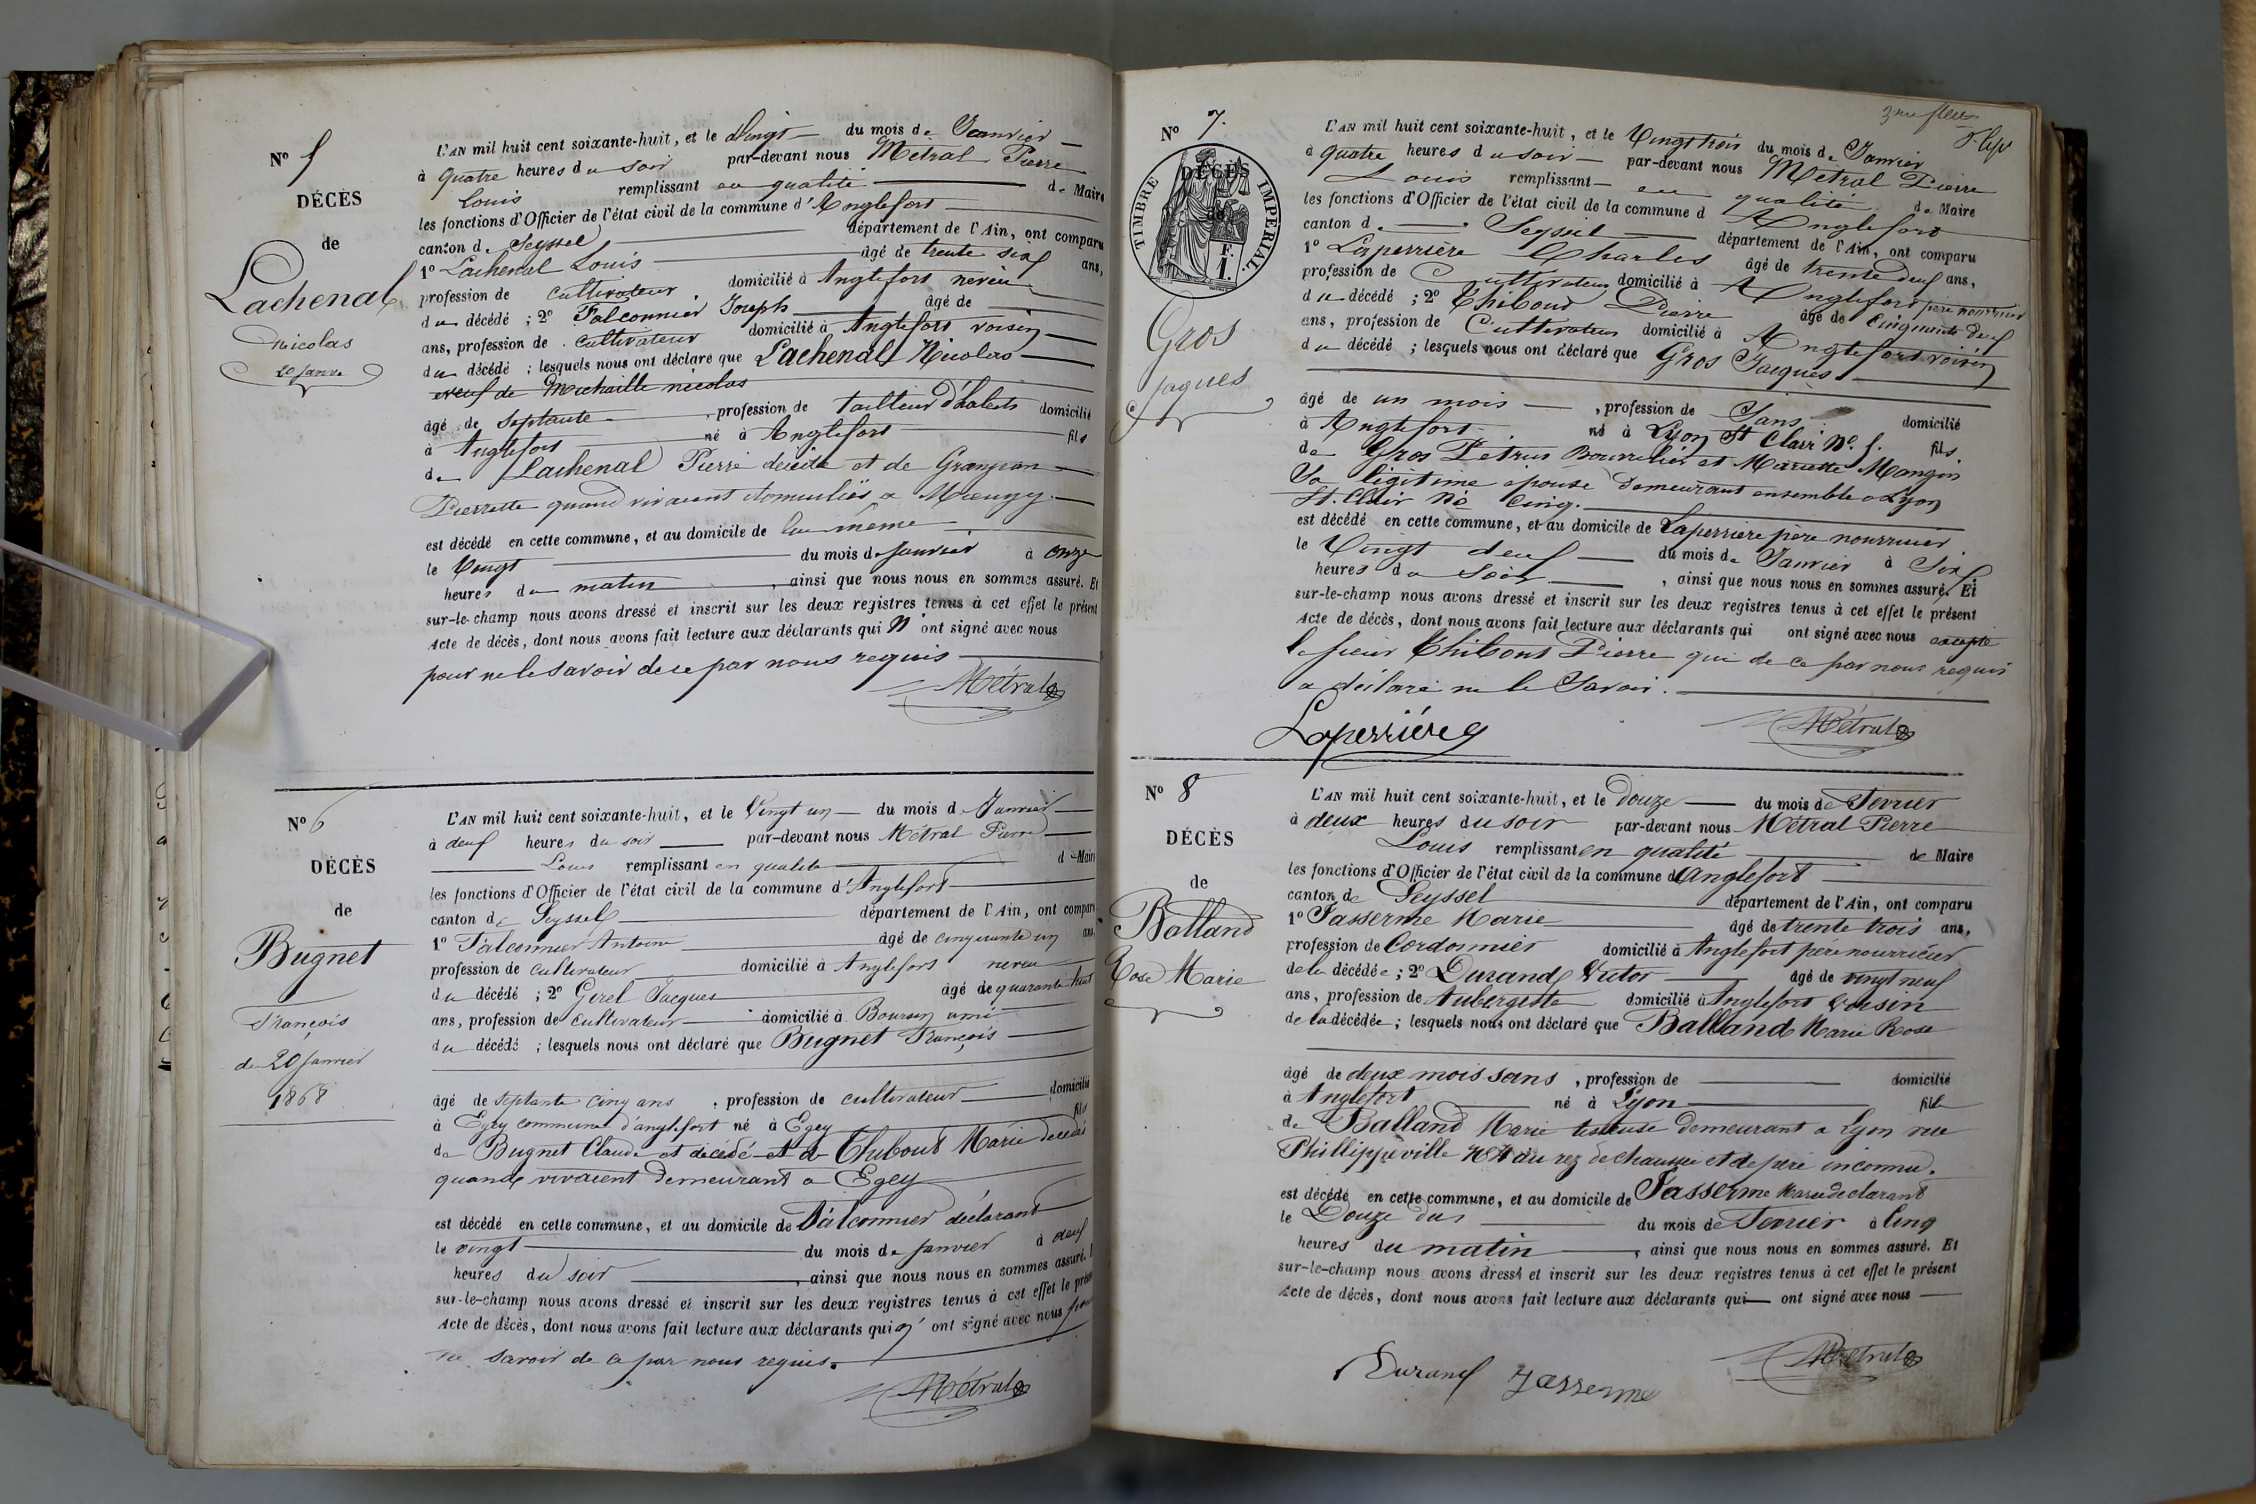 N° 5
DÉCÈS
de
Lachenal
Nicolas
20 Janv
L'AN mil huit cent soixante-huit, et le Vingt du mois de Janvier
à quatre heures du soir par-devant nous Métral Pierre
Louis remplissant en qualité de Maire
les fonctions d'Officier de l'état civil de la commune d'Anglefort
canton de Seyssel département de l'Ain, ont comparu
1° Lachenal Louis âgé de trente six ans,
profession de cultivateur domicilié à Anglefort neveu
du décédé ; 2° Falconnier Joseph âgé de
ans, profession de cultivateur domicilié à Anglefort voisin
du décédé ; lesquels nous ont déclaré que Lachenal Nicolas
veuf de Michaille nicolas
âgé de septante , profession de tailleur d'habits domicilié
à Anglefort né à Anglefort fils
de Lachenal Pierre décédé et de
Pierrette quand vivaient domiciliés a
est décédé en cette commune, et au domicile de lui même
le Vingt du mois de Janvier à onze
heures du matin , ainsi que nous nous en sommes assuré. Et
sur-le-champ nous avons dressé et inscrit sur les deux registres tenus à cet effet le présent
Acte de décès, dont nous avons fait lecture aux déclarants qui N'ont signé avec nous
pour ne le savoir de ce par nous requis
Métral
N° 6
DÉCÈS
de
Bugnet
François
de 20 Janvier
1868
L'AN mil huit cent soixante-huit, et le Vingt un du mois de Janvier
à deux heures du soir par-devant nous Métral Pierre
Louis remplissant en qualité de Maire
les fonctions d'Officier de l'état civil de la commune d'Anglefort
canton de Seyssel département de l'Ain, ont comparu
1° Falconnier Antoine âgé de cinquante un ans,
profession de cultivateur domicilié à Anglefort neveu
du décédé ; 2° Gerel Jacques âgé de quarante huit
ans, profession de cultivateur domicilié à ami
du décédé ; lesquels nous ont déclaré que Bugnet François
âgé de septante cinq ans , profession de cultivateur domicilié
à Egey commune d'anglefort né à Egey fils
de Bugnet Claude et décédé et de Thibout Marie
quand vivaient demeurant a Egey
est décédé en cette commune, et au domicile de Falconnier déclarant
le vingt du mois de janvier à deux
heures du soir , ainsi que nous nous en sommes assuré.
sur-le-champ nous avons dressé et inscrit sur les deux registres tenus à cet effet le présent
Acte de décès, dont nous avons fait lecture aux déclarants qui n'ont signé avec nous pour
ne savoir de ce par nous requis.
Métral
N° 7.
TIMBRE IMPÉRIAL.
1 F.
DÉCÈS
de
Gros
Jaques
L'AN mil huit cent soixante-huit, et le Vingt trois du mois de Janvier
à quatre heures du soir par-devant nous Métral Pierre
Louis remplissant en qualité de Maire
les fonctions d'Officier de l'état civil de la commune d Anglefort
canton de Seyssel département de l'Ain, ont comparu
1° Laperrière Charles âgé de trente deux ans,
profession de Cultivateur domicilié à Anglefort père nourricier
du décédé ; 2° Thiboud Pierre âgé de cinquante deux
ans, profession de Cultivateur domicilié à Anglefort voisin
du décédé ; lesquels nous ont déclaré que Gros Jacques
âgé de un mois , profession de Sans domicilié
à Anglefort né à Lyon St Clair N° 5. fils
de Gros Pétrus Bourrelier et Mariette Mangin
Sa légitime épouse demeurant ensemble a Lyon
St. Clair N° Cinq.
est décédé en cette commune, et au domicile de Laperriere père nourricier
le Vingt deux du mois de Janvier à Six
heures du Soir , ainsi que nous nous en sommes assuré. Et
sur-le-champ nous avons dressé et inscrit sur les deux registres tenus à cet effet le présent
Acte de décès, dont nous avons fait lecture aux déclarants qui ont signé avec nous excepté
le sieur Thibout Pierre qui de ce par nous requis
a déclaré ne le Savoir.
Laperrière Métral
N° 8
DÉCÈS
de
Balland
Rose Marie
L'AN mil huit cent soixante-huit, et le Douze du mois de Fevrier
à deux heures du soir par-devant nous Métral Pierre
Louis remplissant en qualité de Maire
les fonctions d'Officier de l'état civil de la commune d'Anglefort
canton de Seyssel département de l'Ain, ont comparu
1° Jasserme Marie âgé de trente trois ans,
profession de Cordonnier domicilié à Anglefort père nourricier
de la décédée ; 2° Durand Victor âgé de vingt neuf
ans, profession de Aubergiste domicilié à Anglefort Voisin
de la décédée ; lesquels nous ont déclaré que Balland Marie Rose
âgé de deux mois sans , profession de domicilié
à Anglefort né à Lyon fille
de Balland Marie tisseuse demeurant a Lyon rue
Phillippeville N° au rez de chaussée et de père inconnu.
est décédé en cette commune, et au domicile de Jasserme Marie déclarant
le Douze du mois de Fevrier à Cinq
heures du matin , ainsi que nous nous en sommes assuré. Et
sur-le-champ nous avons dressé et inscrit sur les deux registres tenus à cet effet le présent
Acte de décès, dont nous avons fait lecture aux déclarants qui ont signé avec nous
Durand Jasserme Métral